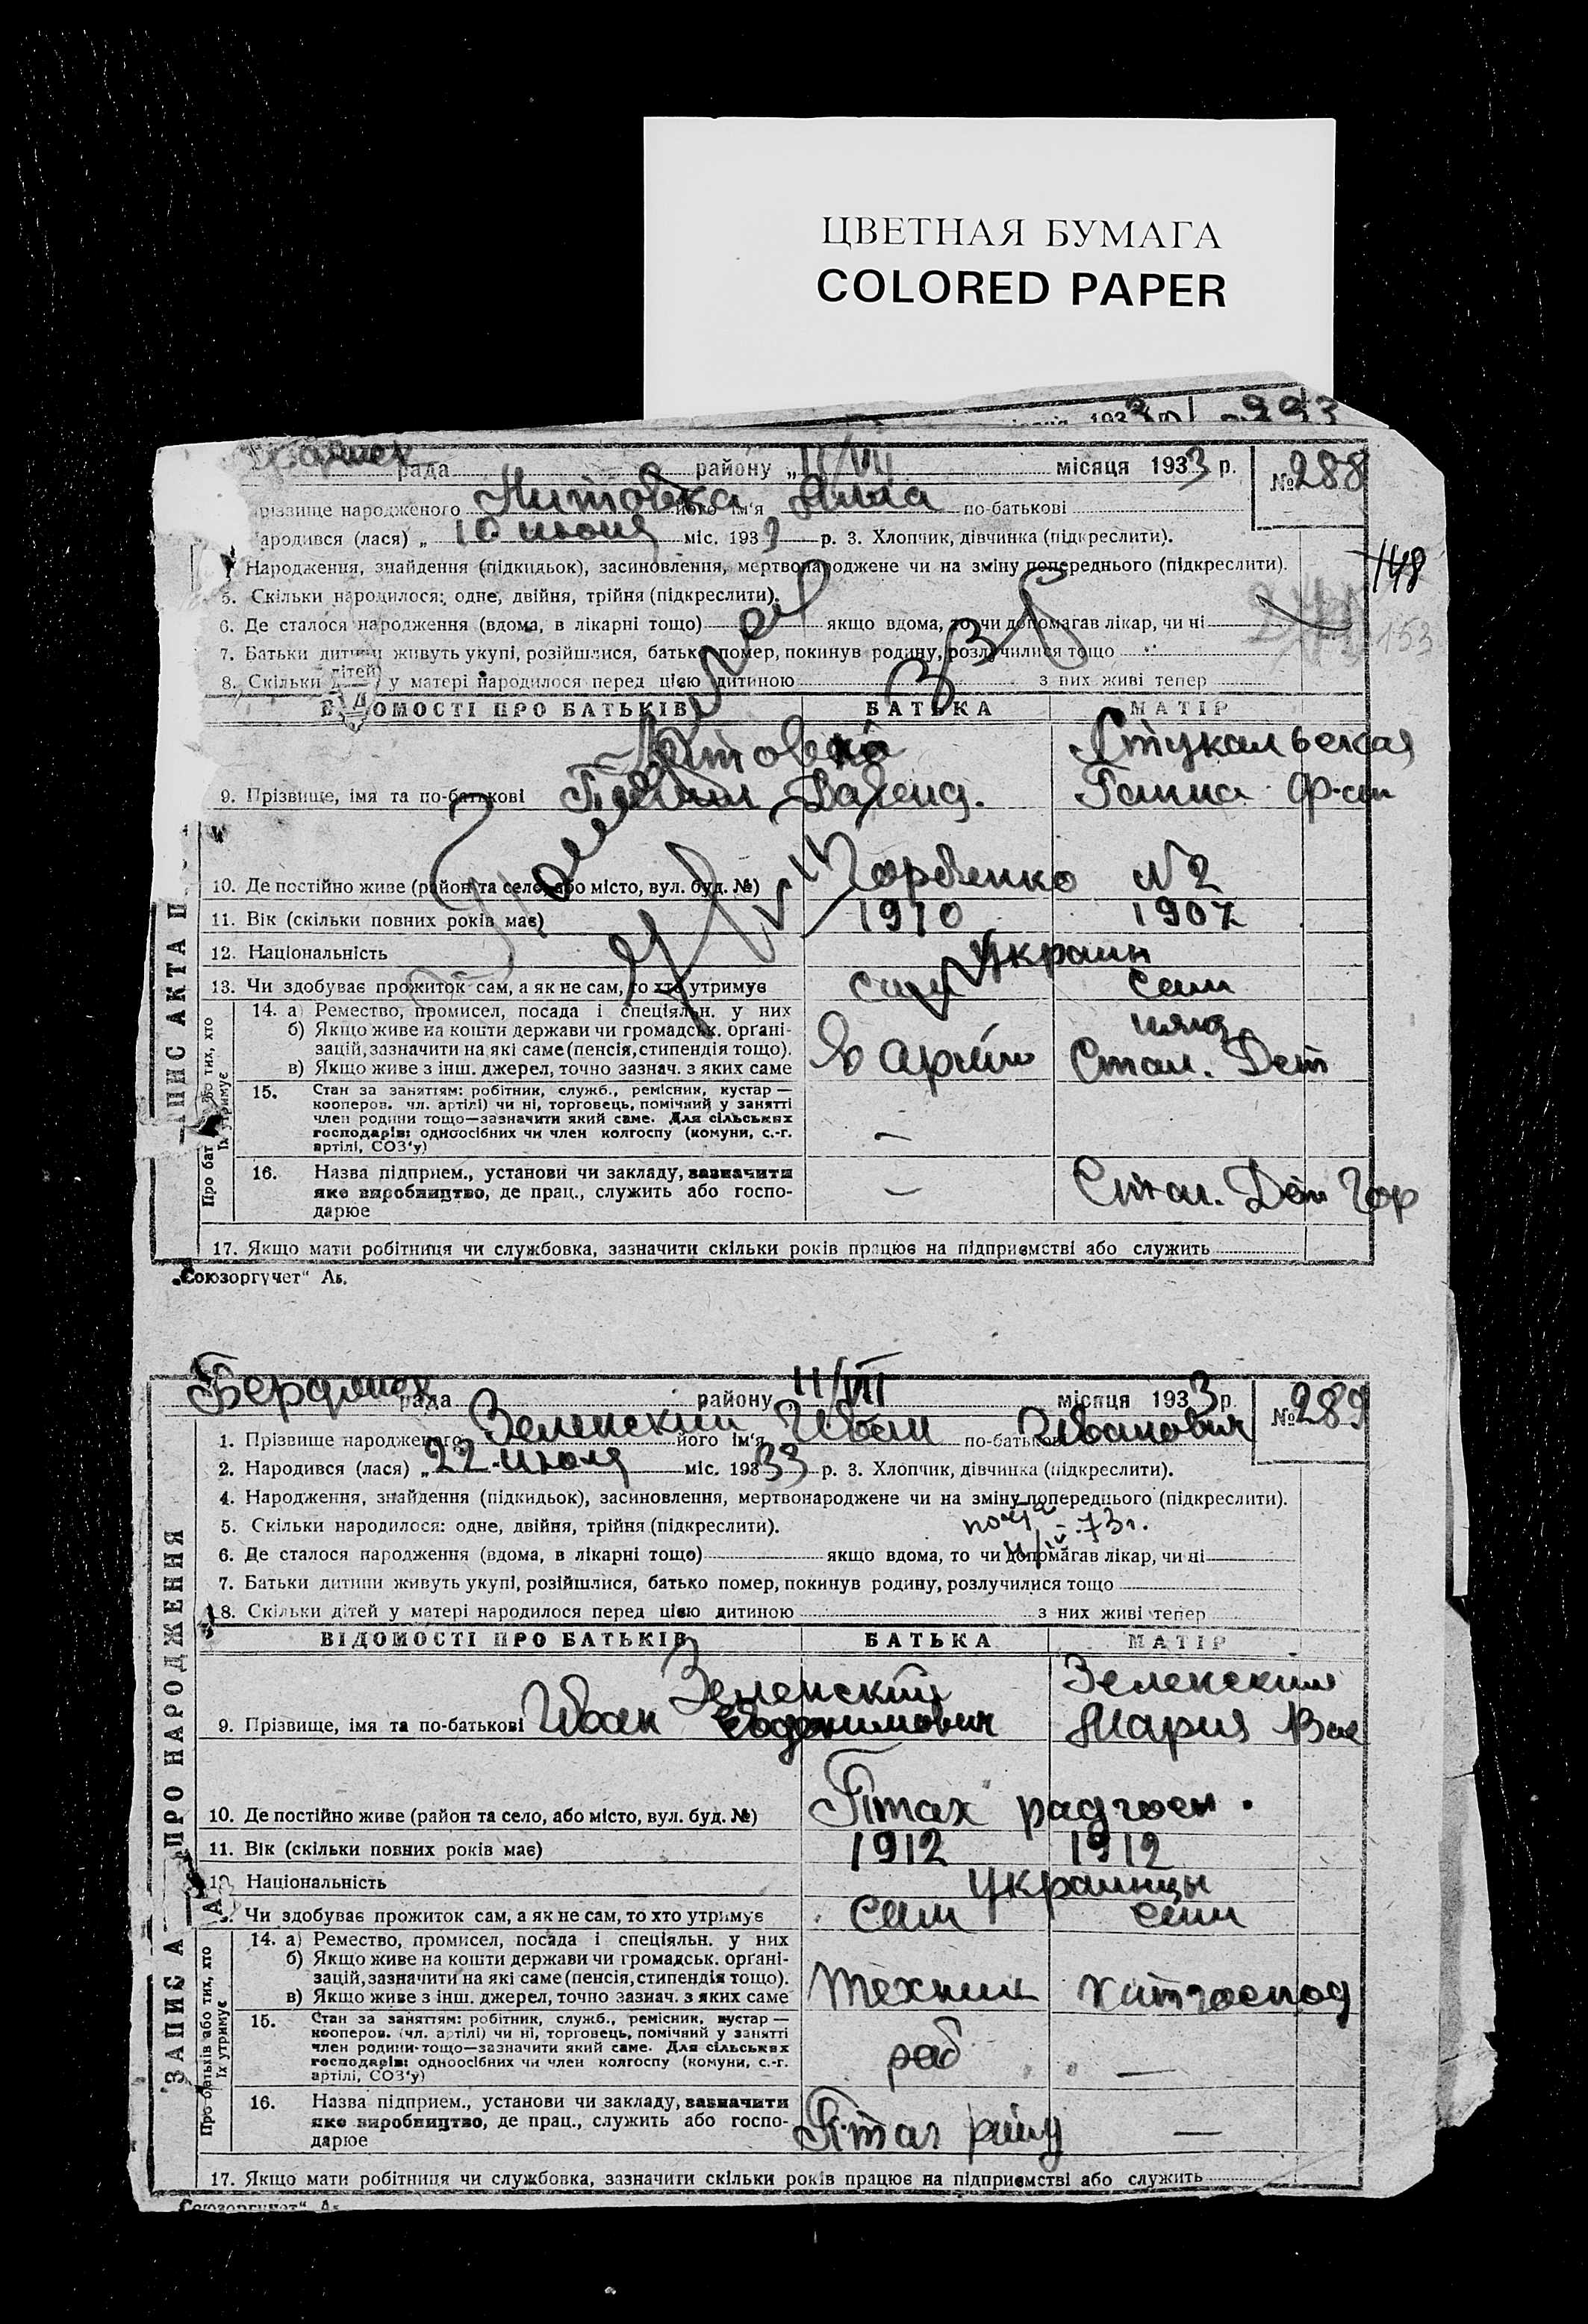 ЦВЕТНАЯ БУМАГА
COLORED PAPER
193 293
рада району „ 11/VII місяця 1933 р. № 288
прізвище народженого Литовка його ім'я Алла по-батькові
народився (лася) „ 10 июня міс. 1933 р. 3. Хлопчик, дівчинка (підкреслити).
Народження, знайдення (підкидьок), засиновлення, мертвонароджене чи на зміну попереднього (підкреслити).
148
5. Скільки народилося: одне, двійня, трійня (підкреслити).
6. Де сталося народження (вдома, в лікарні тощо) якщо вдома, то чи допомагав лікар, чи ні
153
7. Батьки дитини живуть укупі, розійшлися, батько помер, покинув родину, розлучилися тощо
8. Скільки дітей у матері народилося перед цією дитиною з них живі тепер
ВІДОМОСТІ ПРО БАТЬКІВ БАТЬКА МАТІР
Литовка Стукальская
9. Прізвище, імя та по-батькові Ганна
10. Де постійно живе (район та село, або місто, вул. буд. №) Горбенко №2
11. Вік (скільки повних років має) 1910 1907
12. Національність Украин
13. Чи здобуває прожиток сам, а як не сам, то хто утримує сам сам
14. а) Ремество, промисел, посада і спеціяльн. у них няня
б) Якщо живе на кошти держави чи громадськ. органі-
зацій, зазначити на які саме (пенсія, стипендія тощо). в армии Стал. Дет
в) Якщо живе з інш. джерел, точно зазнач. з яких саме
15. Стан за заняттям: робітник, служб., ремісник, кустар —
кооперов. чл. артілі) чи ні, торговець, помічний у занятті
член родини тощо—зазначити який саме. Для сільських
господарів: одноосібних чи член колгоспу (комуни, с.-г. —
артілі, СОЗ'у)
16. Назва підприєм., установи чи закладу, зазначити
яке виробництво, де прац., служить або госпо- — Стал. Дет Гор
дарює
17. Якщо мати робітниця чи службовка, зазначити скільки років працює на підприємстві або служить
„Союзоргучет“
Про батьків або тих, хто
їх утримує
Бердянск рада району 11/VIII місяця 1933 р. № 289
1. Прізвище народженого Зеленский його ім'я Иван по-батькові Иванович
2. Народився (лася) „ 22 июля міс. 19333 р. 3. Хлопчик, дівчинка (підкреслити).
4. Народження, знайдення (підкидьок), засиновлення, мертвонароджене чи на зміну попереднього (підкреслити).
5. Скільки народилося: одне, двійня, трійня (підкреслити). 73г.
6. Де сталося народження (вдома, в лікарні тощо) якщо вдома, то чи допомагав лікар, чи ні
7. Батьки дитини живуть укупі, розійшлися, батько помер, покинув родину, розлучилися тощо
8. Скільки дітей у матері народилося перед цією дитиною з них живі тепер
ВІДОМОСТІ ПРО БАТЬКІВ БАТЬКА МАТІР
Зеленский Зеленский
9. Прізвище, імя та по-батькові Иван Евдокимович Мария Вас
10. Де постійно живе (район та село, або місто, вул. буд. №) Птах радгосп.
11. Вік (скільки повних років має) 1912 1912
12. Національність Украинцы
Чи здобуває прожиток сам, а як не сам, то хто утримує сам сам
14. а) Ремество, промисел, посада і спеціяльн. у них
б) Якщо живе на кошти держави чи громадськ. органі-
зацій, зазначити на які саме (пенсія, стипендія тощо). техник хатгоспод
в) Якщо живе з інш. джерел, точно зазнач. з яких саме
15. Стан за заняттям: робітник, служб., ремісник, кустар —
кооперов. (чл. артілі) чи ні, торговець, помічний у занятті
член родини тощо—зазначити який саме. Для сільських раб
господарів: одноосібних чи член колгоспу (комуни, с.-г. —
артілі, СОЗ'у)
16. Назва підприєм., установи чи закладу, зазначити
яке виробництво, де прац., служить або госпо- Птах —
дарює
17. Якщо мати робітниця чи службовка, зазначити скільки років працює на підприємстві або служить
„Союзоргучет“
ЗАПИС АКТА ПРО НАРОДЖЕННЯ
Про батьків або тих, хто
їх утримує